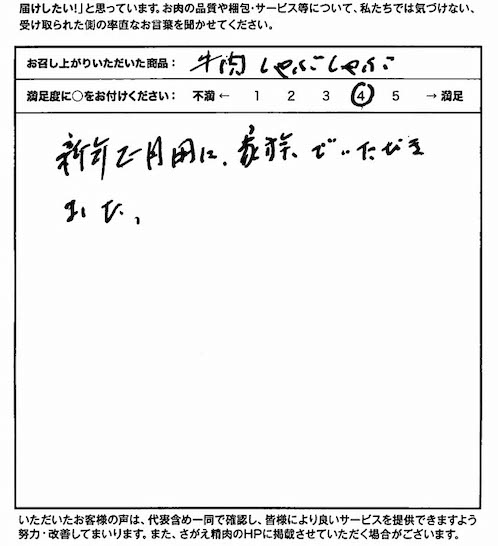 届けしたい！」と思っています。お肉の品質や梱包・サービス等について、私たちでは気づけない、
受け取られた側の率直なお言葉を聞かせてください。
お召し上がりいただいた商品： 牛肉しゃぶしゃぶ
満足度に○をお付けください： 不満 ← 1 2 3 4 5 → 満足
新年正月用に、家族でいただき
ました。
いただいたお客様の声は、代表含め一同で確認し、皆様により良いサービスを提供できますよう
努力・改善してまいります。また、さがえ精肉のHPに掲載させていただく場合がございます。